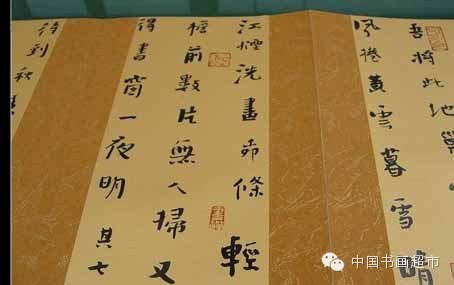 吾將此地
風捲黃雲暮雪晴
江煙洗盡柳條輕
檐前數片無人掃又
得書窗一夜明 其七
待到秋
中国书画超市